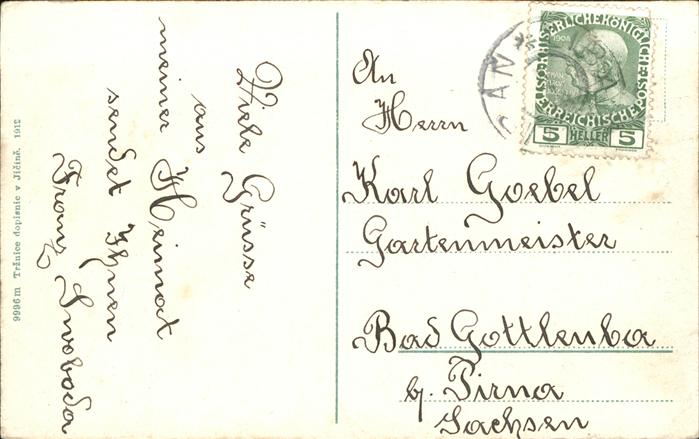 Viele Grüsse
aus
meiner Heimat
sendet Ihnen
Franz Swoboda
9996m Tržnice dopisnic v Jičíně. 1912
An
Herrn
Karl Goebel
Gartenmeister
Bad Gottleuba
b. Pirna
Sachsen
KAISERLICHE KÖNIGLICHE
OESTERREICHISCHE POST
1908
5 HELLER 5